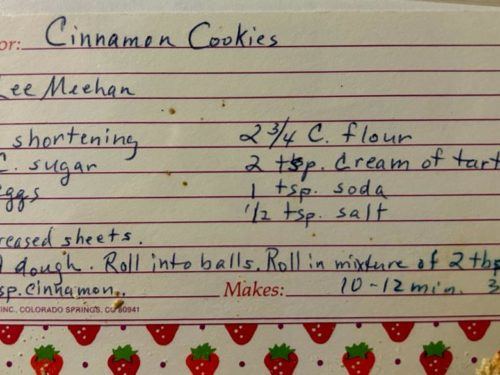 or: Cinnamon Cookies
Lee Meehan
shortening 2 3/4 C. flour
C. sugar 2 tsp. Cream of tart
eggs 1 tsp. soda
1/2 tsp. salt
reased sheets.
dough. Roll into balls. Roll in mixture of 2 tbp
sp. cinnamon. Makes: 10-12 min. 3
INC., COLORADO SPRINGS, CO 80941